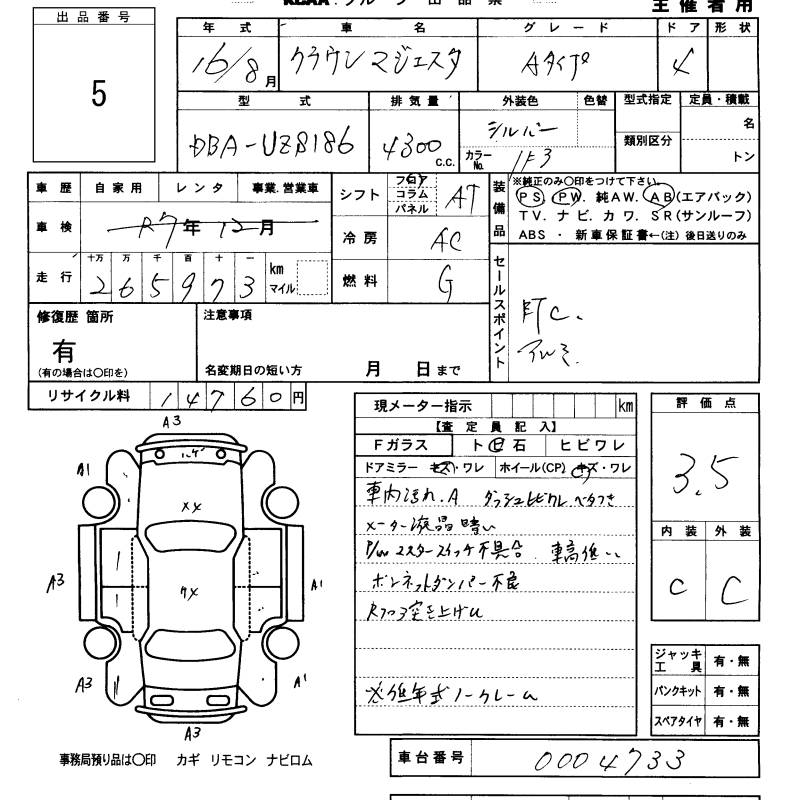 主催者用
出品番号
5
年式 車名 グレード ドア 形状
16/8月 クラウンマジェスタ Aタイプ 4
型式 排気量 外装色 色替 型式指定 定員・積載
DBA-UZS186 4300c.c. シルバー 名
カラーNo. 1F3 類別区分 トン
車歴 自家用 レンタ 事業.営業車
車検 R7年12月
シフト フロア コラム パネル AT
冷房 AC
燃料 G
走行 十万 万 千 百 十 一 km マイル
265973
装備品
※純正のみ〇印をつけて下さい。
PS. PW. 純AW. AB(エアバック)
TV. ナビ. カワ. SR(サンルーフ)
ABS ・ 新車保証書←(注) 後日送りのみ
セールスポイント
ETC.
アルミ.
修復歴 箇所
有
(有の場合は〇印を)
注意事項
名変期日の短い方 月 日まで
リサイクル料 14760円
現メーター指示 km
【査定員記入】
Fガラス ト飛石 ヒビワレ
ドアミラー キズ・ワレ ホイール(CP) キズ・ワレ
車内汚れ.A ダッシュヒビワレ ベタつき
メーター液晶暗い
P/W マスタースイッチ不具合 車高低い
ボンネットダンパー不良
突き上げ
※低年式ノークレーム
評価点
3.5
内装 外装
C C
A3
A1
A3
A1
A3
A1
A3
ジャッキ 工具 有・無
パンクキット 有・無
スペアタイヤ 有・無
事務局預り品は〇印 カギ リモコン ナビロム
車台番号 0004733